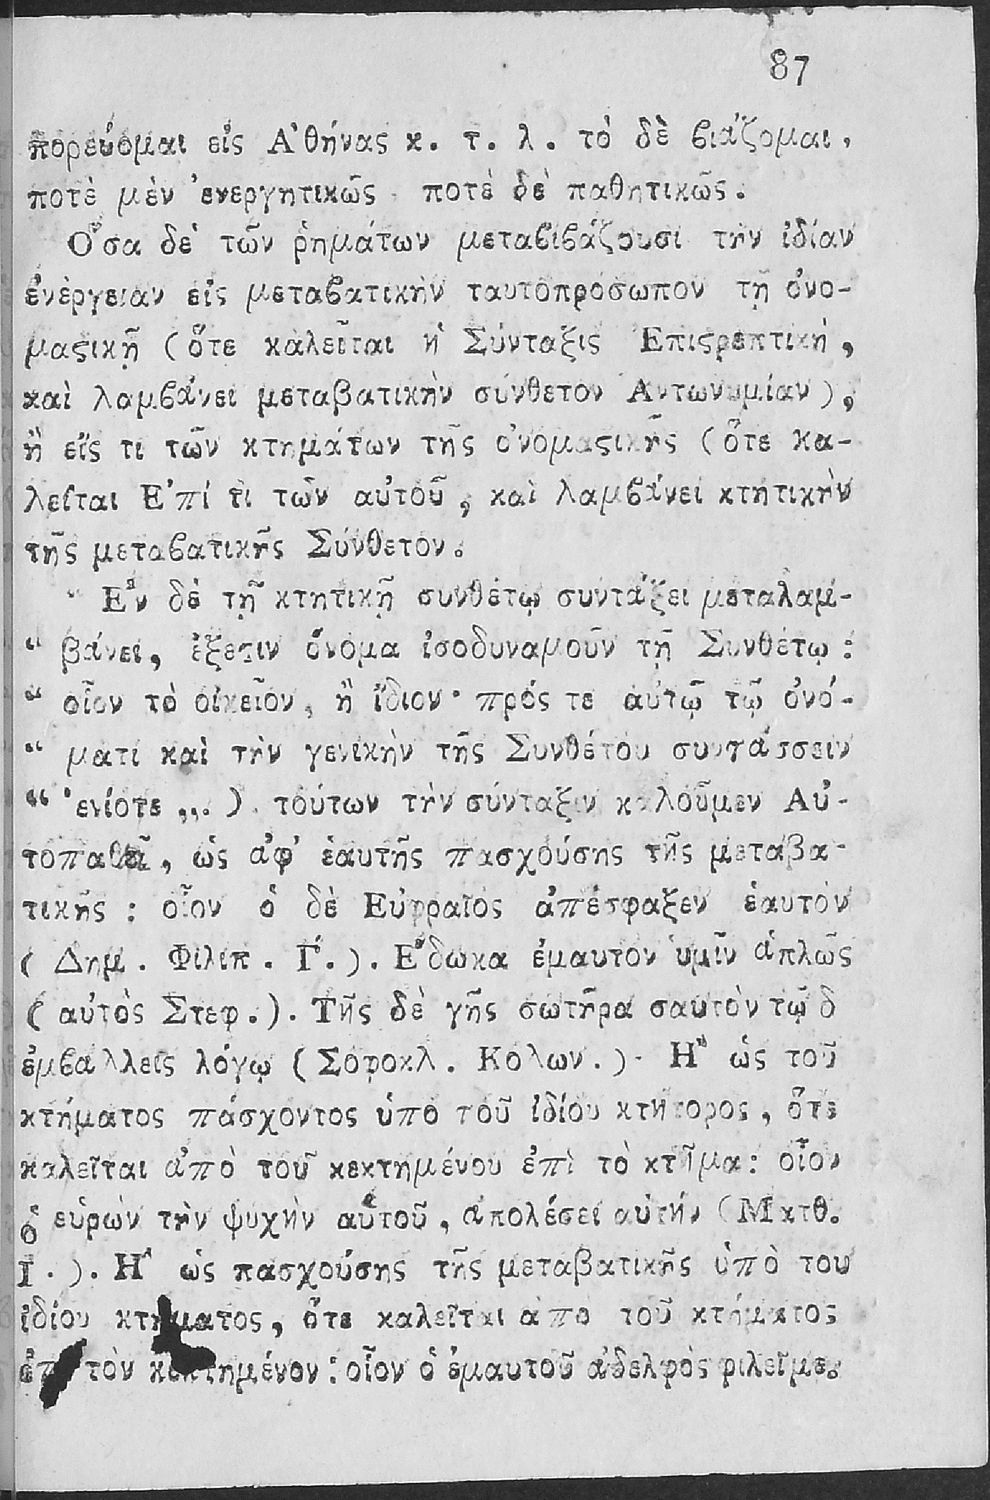 87
πορεύομαι εἰς Ἀθήνας κ. τ. λ. τὸ δὲ βιάζομαι,
ποτὲ μὲν ἐνεργητικῶς ποτὲ δὲ παθητικῶς.
Ὅσα δὲ τῶν ῥημάτων μεταβιβάζουσι τὴν ἰδίαν
ἐνέργειαν εἰς μεταβατικὴν ταυτοπρόσωπον τῇ ὀνο-
μαϛικῇ (ὅτε καλεῖται ἡ Σύνταξις Ἐπιϛρεπτικὴ,
καὶ λαμβάνει μεταβατικὴν σύνθετον Ἀντωνυμίαν),
ἢ εἴς τι τῶν κτημάτων τῆς ὀνομαϛικῆς (ὅτε κα-
λεῖται Ἐπί τι τῶν αὑτοῦ, καὶ λαμβάνει κτητικὴν
τῆς μεταβατικῆς Σύνθετον.
" Ἐν δὲ τῇ κτητικῇ συνθέτῳ συντάξει μεταλαμ-
" βάνει, ἔξεϛιν ὄνομα ἰσοδυναμοῦν τῇ Συνθέτῳ:
" οἷον τὸ οἰκεῖον, ἢ ἴδιον· πρός τε αὐτῷ τῷ ὀνό-
" ματι καὶ τὴν γενικὴν τῆς Συνθέτου συντάσσειν
" ἐνίοτε ,,. ). τούτων τὴν σύνταξιν καλοῦμεν Αὐ-
τοπαθῆ, ὡς ἀφ' ἑαυτῆς πασχούσης τῆς μεταβα-
τικῆς: οἷον ὁ δὲ Εὐφραῖος ἀπέσφαξεν ἑαυτὸν
(Δημ. Φιλιπ. Γ΄.). Ἔδωκα ἐμαυτὸν ὑμῖν ἁπλῶς
(αὐτὸς Στεφ.). Τῆς δὲ γῆς σωτῆρα σαυτὸν τῷδ
ἐμβάλλεις λόγῳ (Σοφοκλ. Κολων.)· Ἢ ὡς τοῦ
κτήματος πάσχοντος ὑπὸ τοῦ ἰδίου κτήτορος, ὅτε
καλεῖται ἀπὸ τοῦ κεκτημένου ἐπὶ τὸ κτῆμα: οἷον
ὁ εὑρὼν τὴν ψυχὴν αὑτοῦ, ἀπολέσει αὐτήν (Ματθ.
Ι΄.). Ἢ ὡς πασχούσης τῆς μεταβατικῆς ὑπὸ του
ἰδίου κτήματος, ὅτε καλεῖται ἀπὸ τοῦ κτήματος
ἐπὶ τὸν κεκτημένον: οἷον ὁ ἐμαυτοῦ ἀδελφὸς φιλεῖ με.